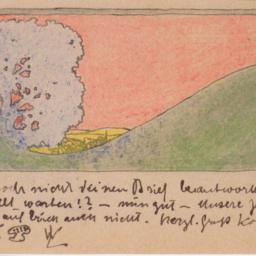 noch nicht deinen Brief beantwort
warten!? – nun gut – Unsere
auf Euch auch nicht. Herzl. Gruß